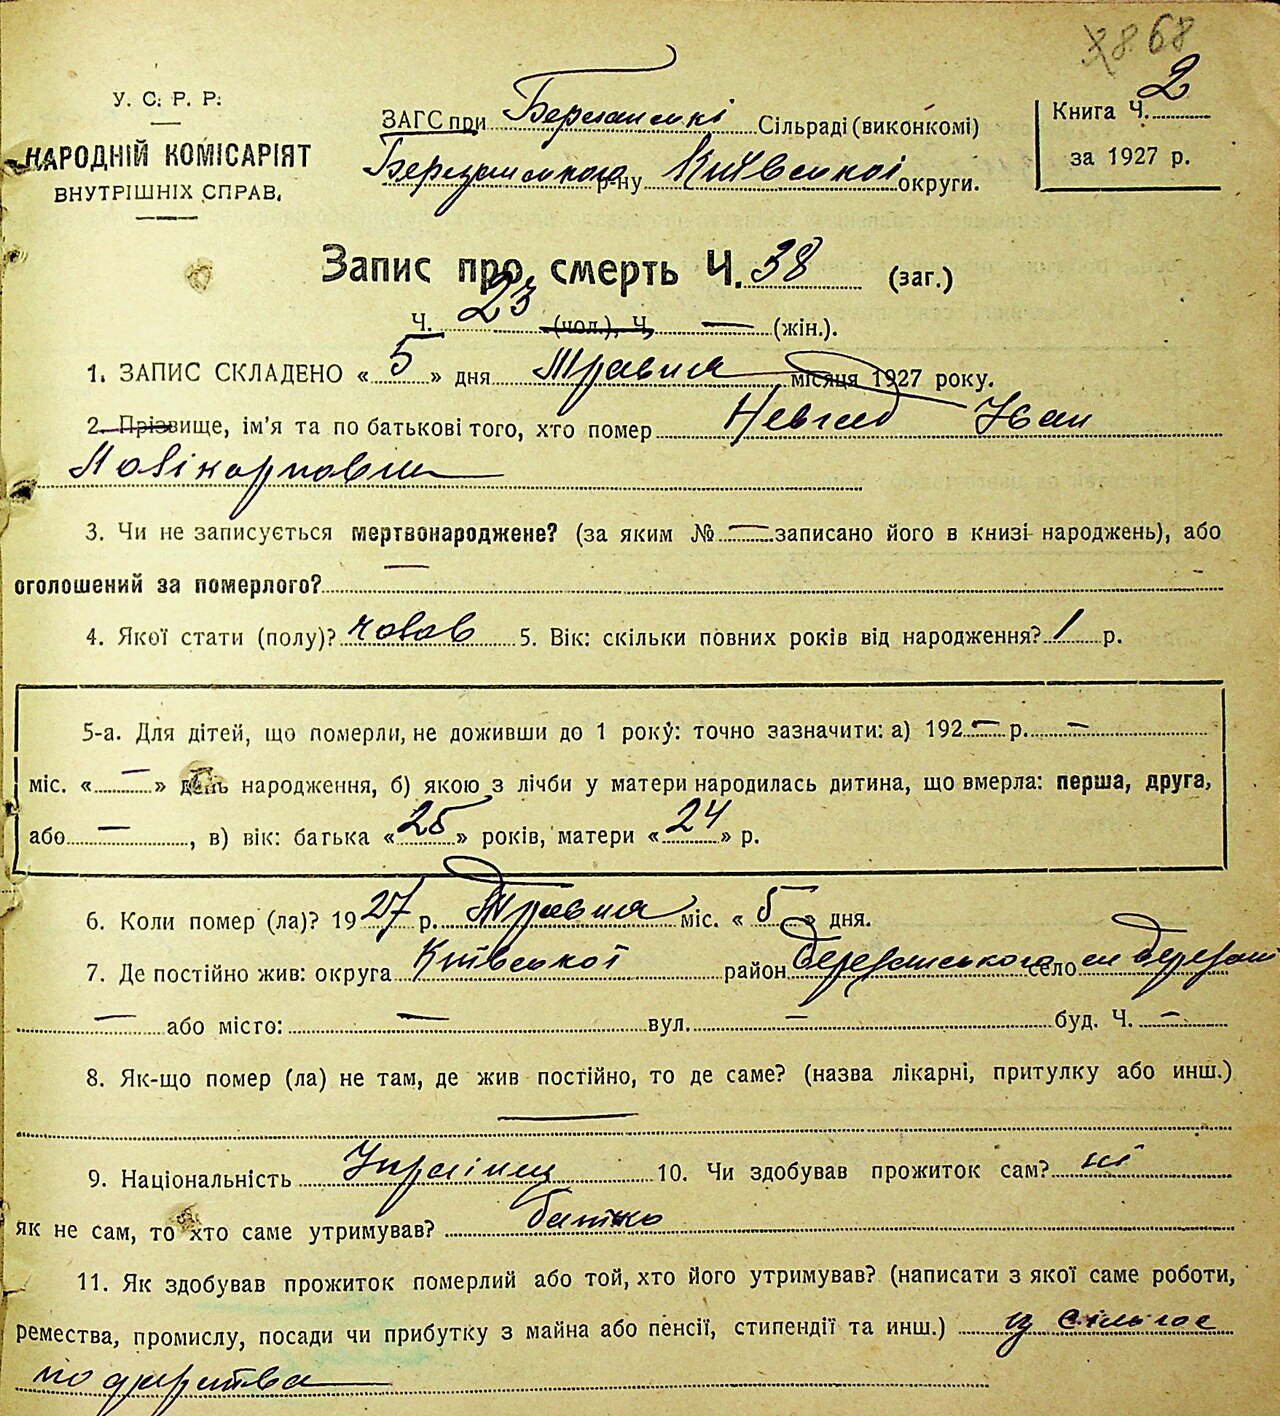 68
У. С. Р. Р.
НАРОДНІЙ КОМІСАРІЯТ
ВНУТРІШНІХ СПРАВ.
ЗАГС при Сільраді (виконкомі)
Березанського р-ну Київської округи.
Книга Ч. 2
за 1927 р.
Запис про смерть Ч. 38 (заг.)
Ч. 23 (чол.), Ч. — (жін.).
1. ЗАПИС СКЛАДЕНО « 5 » дня Травня місяця 1927 року.
2. Прізвище, ім'я та по батькові того, хто помер Іван
Полікарпович
3. Чи не записується мертвонароджене? (за яким № — записано його в книзі народжень), або
оголошений за померлого? —
4. Якої стати (полу)? 5. Вік: скільки повних років від народження? 1 р.
5-а. Для дітей, що померли, не доживши до 1 року: точно зазначити: а) 192 — р. —
міс. « — » день народження, б) якою з лічби у матери народилась дитина, що вмерла: перша, друга,
або — , в) вік: батька « 25 » років, матери « 24 » р.
6. Коли помер (ла)? 1927 р. Травня міс. « 5 » дня.
7. Де постійно жив: округа Київської район Березанського село Березані
— або місто: — вул. — буд. Ч. —
8. Як-що помер (ла) не там, де жив постійно, то де саме? (назва лікарні, притулку або инш.)
—
9. Національність Українец 10. Чи здобував прожиток сам? ні
як не сам, то хто саме утримував? батько
11. Як здобував прожиток померлий або той, хто його утримував? (написати з якої саме роботи,
ремества, промислу, посади чи прибутку з майна або пенсії, стипендії та инш.) сільгос
подарства